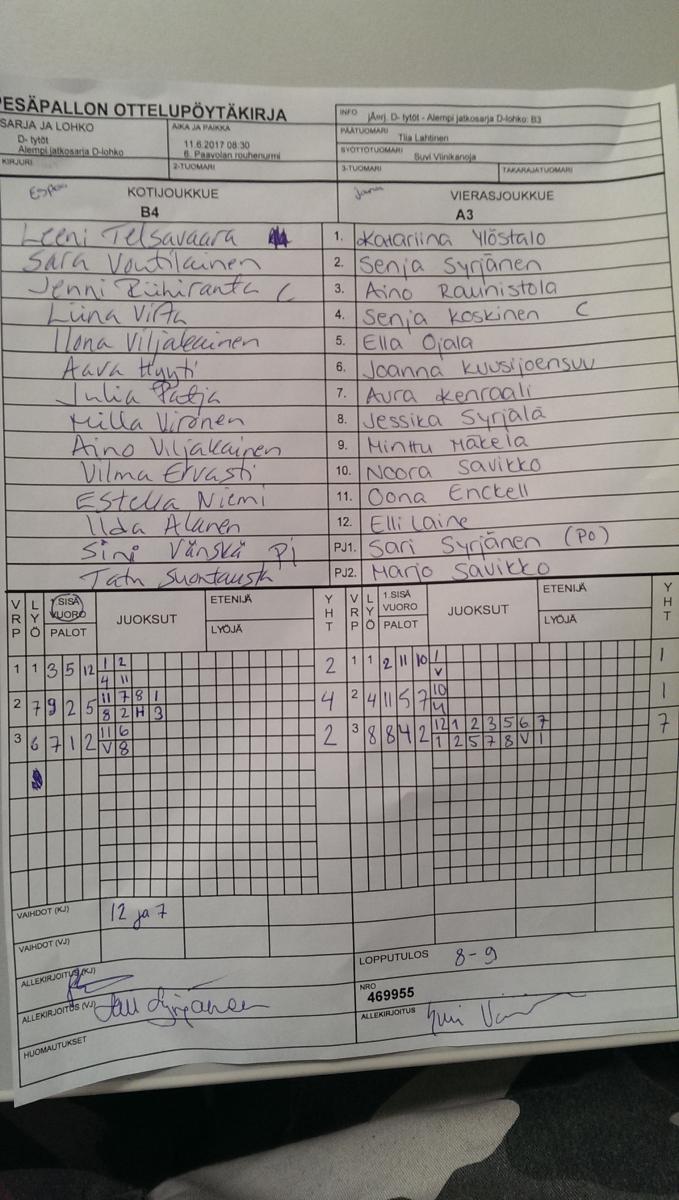 PESÄPALLON OTTELUPÖYTÄKIRJA
SARJA JA LOHKO
D- tytöt
Alempi jatkosarja D-lohko
AIKA JA PAIKKA
11.6.2017 08:30
6. Paavolan rouhenurmi
INFO jÄrj. D- tytöt - Alempi jatkosarja D-lohko: B3
PÄÄTUOMARI Tiia Lahtinen
SYÖTTÖTUOMARI Suvi Viinikanoja
KIRJURI
2-TUOMARI
3-TUOMARI
TAKARAJATUOMARI
Espoo KOTIJOUKKUE
B4
Jana VIERASJOUKKUE
A3
Leeni Telsavaara 1. Katariina Ylöstalo
Sara Voutilainen 2. Senja Syrjänen
Jenni Riihiranta C 3. Aino Raunistola
Liina Virta 4. Senja Koskinen C
Ilona Viljakainen 5. Ella Ojala
Aava Hyyti 6. Joanna Kuusijoensuu
Julia Patja 7. Aura Kenraali
Milla Vironen 8. Jessika Syrjälä
Aino Viljakainen 9. Minttu Mäkelä
Vilma Ervasti 10. Noora Savikko
Estella Niemi 11. Oona Enckell
Ilda Alanen 12. Elli Laine
Sini Vänskä PJ PJ1. Sari Syrjänen (PO)
Tatu Suontausta PJ2. Marjo Savikko
VRP LYÖ 1.SISÄ VUORO PALOT JUOKSUT ETENIJÄ LYÖJÄ YHT VRP LYÖ 1.SISÄ VUORO PALOT JUOKSUT ETENIJÄ LYÖJÄ YHT
1 1 3 5 12 1 2 2 1 1 2 11 10 1 1
4 11 V
2 7 9 2 5 11 7 8 1 4 2 4 11 5 7 10 1
8 2 H 3 4
3 6 7 1 2 11 6 2 3 8 8 4 2 12 1 2 3 5 6 7 7
V 8 1 2 5 7 8 V 1
VAIHDOT (KJ) 12 ja 7
VAIHDOT (VJ)
LOPPUTULOS 8-9
ALLEKIRJOITUS (KJ)
NRO
469955
ALLEKIRJOITUS (VJ) Sari Syrjänen
ALLEKIRJOITUS
HUOMAUTUKSET